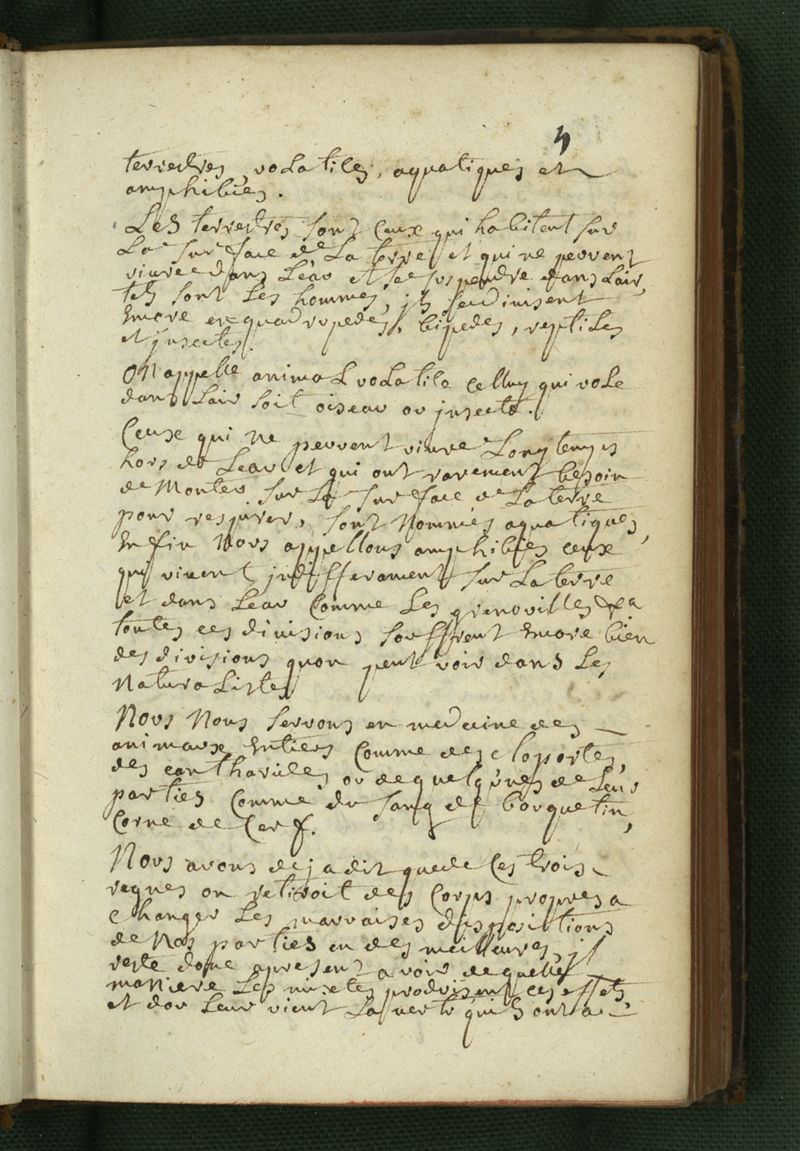 5
terrestres, volatiles, aquatiques et
amphibies.
Les terrestres sont ceux qui habitent sur
La surface de La terre et qui ne peuvent
vivre dans Leav et se suspendre dans Lair,
tels sont Les hommes, ils se divisent
encore en quadrupedes, bipedes, reptiles
et jnsectes.
On appelle animal volatile celluy qui vole
dans Lair soit oiseav ov jnsecte.
Ceux qui ne peuvent vivre Longtemps
hors de Leav et qui ont rarement besoin
de Monter sur La surface de La terre
pour respirer, sont Nommés aquatiques,
Enfin Novs appellons amphibies ceux
qui vivent jndifferament sur La terre
et dans Leav Comme Les grenovilles &a
toutes ces divisions souffrent encore bien
des divisions quon peut voir dans Les
Naturalistes
Novs Nous servons en medecine des
animaux Entiers Comme des cloportes,
des cantharides, ov de quelqunes de Leurs
parties Comme du sang de bouquetin,
Corne de Cerf.
Novs avons deja dit que de Ces trois
regnes on retiroit des Corps propres a
Changer Les mavvaises dispositions
de Nos parties en des meilleures, jl
reste donc apresent a voir de quelle
maniere Les mixtes prodvisent ces effets,
et dov Leur vient La vertu quils ont a